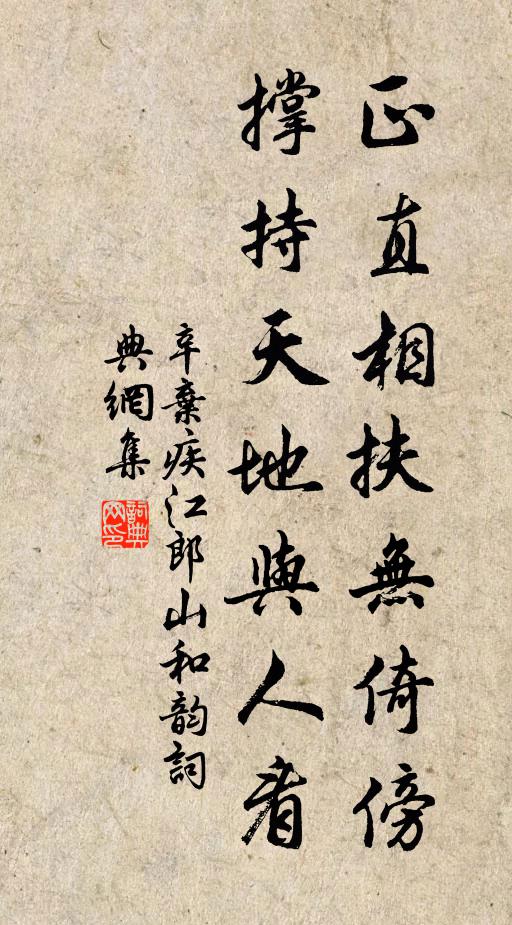 正直相扶無倚傍
撐持天地與人看
辛棄疾江郎山和韵詞
典網集
詞典網印